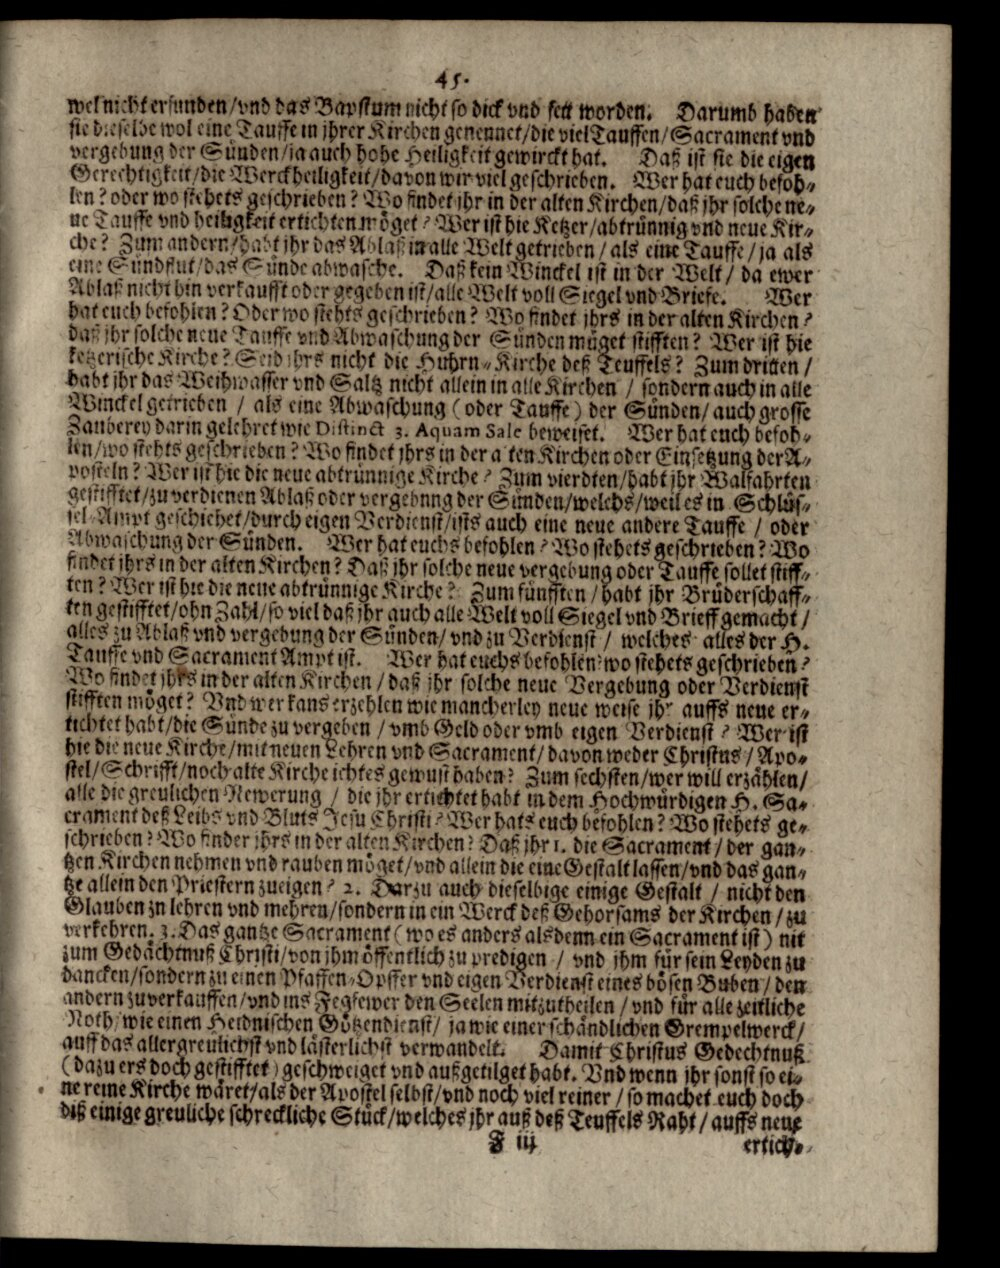 45.
wel nicht erfunden/vnd das Bapstum nicht so dick vnd fett worden. Darumb haben
sie dieselbe wol eine Tauffe in jhrer Kirchen genennet/die viel Tauffen/Sacrament vnd
vergebung der Sünden/ja auch hohe Heiligkeit gewirckt hat. Daß ist sie die eigen
Gerechtigkeit/die Werckheiligkeit/davon wir viel geschrieben. Wer hat euch befoh⸗
len? oder wo stehets geschrieben? Wo findet jhr in der alten Kirchen/daß jhr solche ne⸗
ue Tauffe vnd heiligkeit ertichten möget? Wer ist hie Ketzer/abtrünnig vnd neue Kir⸗
che? Zum andern/habt jhr das Ablaß in alle Welt getrieben/als eine Tauffe/ja als
eine Sündflut/das Sünde abwasche. Daß kein Winckel ist in der Welt/da ewer
Ablaß nicht hin verkaufft oder gegeben ist/alle Welt voll Siegel vnd Briefe. Wer
hat euch befohlen? Oder wo stehts geschrieben? Wo findet jhrs in der alten Kirchen?
daß jhr solche neue Tauffe vnd Abwaschung der Sünden müget stifften? Wer ist hie
ketzerische Kirche? Seid jhrs nicht die Huhrn⸗Kirche deß Teuffels? Zum dritten/
habt jhr das Weihwasser vnd Saltz nicht allein in alle Kirchen/sondern auch in alle
Winckel getrieben/als eine Abwaschung (oder Tauffe) der Sünden/auch grosse
Zauberey darin gelehret wie Distinct 3. Aquam Sale beweiset. Wer hat euch befoh⸗
len/wo stehts geschrieben? Wo findet jhrs in der alten Kirchen oder Einsetzung der A⸗
posteln? Wer ist hie die neue abtrünnige Kirche? Zum vierdten/habt jhr Walfahrten
gestifftet/zu verdienen Ablaß oder vergebnng der Sünden/welchs/weil es in Schlüs⸗
sel⸗Ampt geschiehet/durch eigen Verdienst/ists auch eine neue andere Tauffe/oder
Abwaschung der Sünden. Wer hat euchs befohlen? Wo stehets geschrieben? Wo
findet jhrs in der alten Kirchen? Daß jhr solche neue vergebung oder Tauffe sollet stiff⸗
ten? Wer ist hie die neue abtrünnige Kirche? Zum fünfften/habt jhr Brüderschaff⸗
ten gestifftet/ohn Zahl/so viel daß jhr auch alle Welt voll Siegel vnd Brieff gemacht/
alles zu Ablaß vnd vergebung der Sünden/vnd zu Verdienst/welches alles der H.
Tauffe vnd Sacrament Ampt ist. Wer hat euchs befohlen? wo stehets geschrieben?
Wo findet jhrs in der alten Kirchen/daß jhr solche neue Vergebung oder Verdienst
stifften möget? Vnd wer kans erzehlen wie mancherley neue weise jhr auffs neue er⸗
tichtet habt/die Sünde zu vergeben/vmb Geld oder vmb eigen Verdienst? Wer ist
hie die neue Kirche/mit neuen Lehren vnd Sacrament/davon weder Christus/Apo⸗
stel/Schrifft/noch alte Kirche ichtes gewust haben? Zum sechsten/wer will erzählen/
alle die greulichen Newerung/die jhr ertichtet habt in dem Hochwürdigen H. Sa⸗
crament deß Leibs vnd Bluts Jesu Christi? Wer hats euch befohlen? Wo stehets ge⸗
schrieben? Wo finder jhrs in der alten Kirchen? Daß jhr 1. die Sacrament/der gan⸗
tzen Kirchen nehmen vnd rauben möget/vnd allein die eine Gestalt lassen/vnd das gan⸗
tze allein den Priestern zueigen? 2. Darzu auch dieselbige einige Gestalt/nicht den
Glauben zu lehren vnd mehren/sondern in ein Werck deß Gehorsams der Kirchen/zu
verkehren. 3. Das gantze Sacrament (wo es anders alsdenn ein Sacrament ist) nit
zum Gedächtnuß Christi/von jhm öffentlich zu predigen/vnd jhm für sein Leyden zu
dancken/sondern zu einen Pfaffen⸗Opffer vnd eigen Verdienst eines bösen Buben/den
andern zuverkauffen/vnd ins Fegfewer den Seelen mitzutheilen/vnd für alle zeitliche
Noth/wie einen Heidnischen Götzendienst/ja wie einer schändlichen Grempelwerck/
auff das allergreulichst vnd lästerlichst verwandelt. Damit Christus Gedechtnuß
(dazu ers doch gestifftet) geschweiget vnd außgetilget habt. Vnd wenn jhr sonst so ei⸗
ne reine Kirche wäret/als der Apostel selbst/vnd noch viel reiner/so machet euch doch
diß einige greuliche schreckliche Stück/welches jhr auß deß Teuffels Raht/auffs neue
F iij ertich⸗